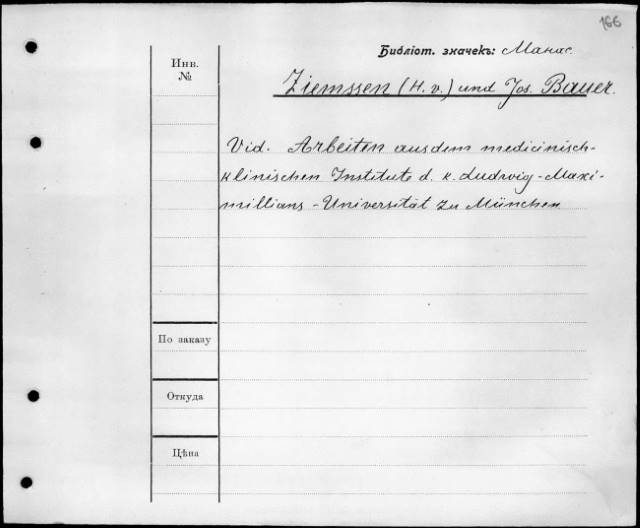 166
Библіот. значекъ: Манас.
Инв.
№
Ziemssen (H. v.) und Jos. Bauer.
Vid. Arbeiten aus dem medicinisch-
klinischen Institute d. k. Ludwig-Maxi-
millians-Universität zu München
По заказу
Откуда
Цѣна